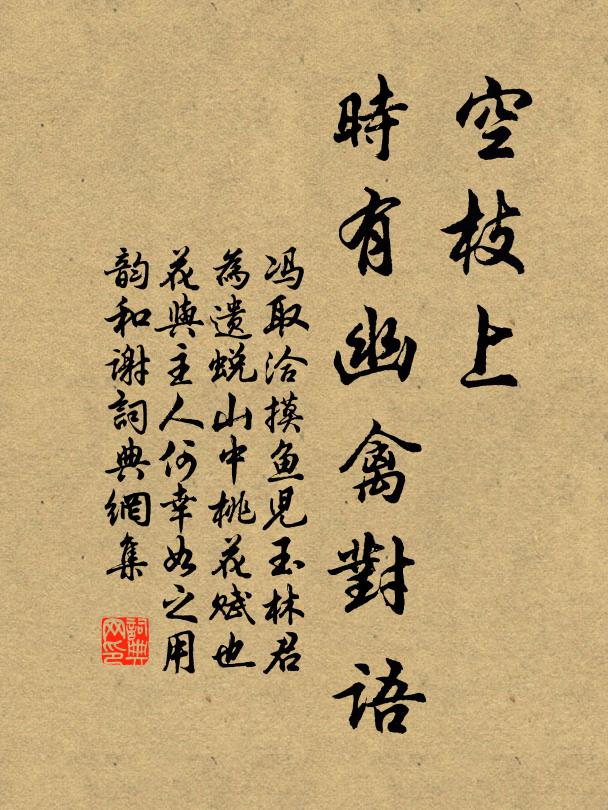 空枝上
時有幽禽對語
冯取洽摸鱼児玉林君
為遺蜕山中桃花赋也
花與主人何幸如之用
韵和谢詞典網集
詞典網印